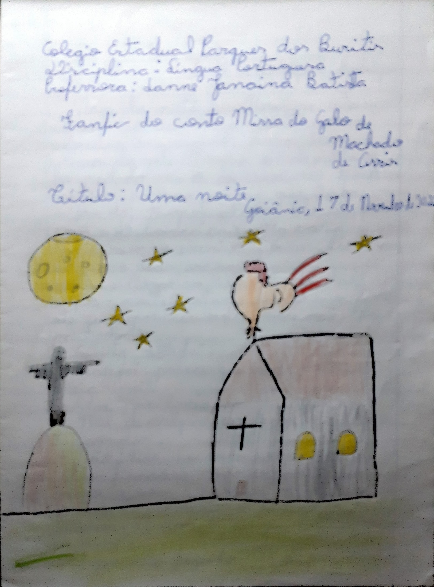 Colegio Estadual Parque dos Buritis
Disciplina: Língua Portuguesa
Professora: Janaina Batista
Fanfic do conto Missa do Galo de
Machado
de Assis
Título: Uma noite
Goiânia, 17 de